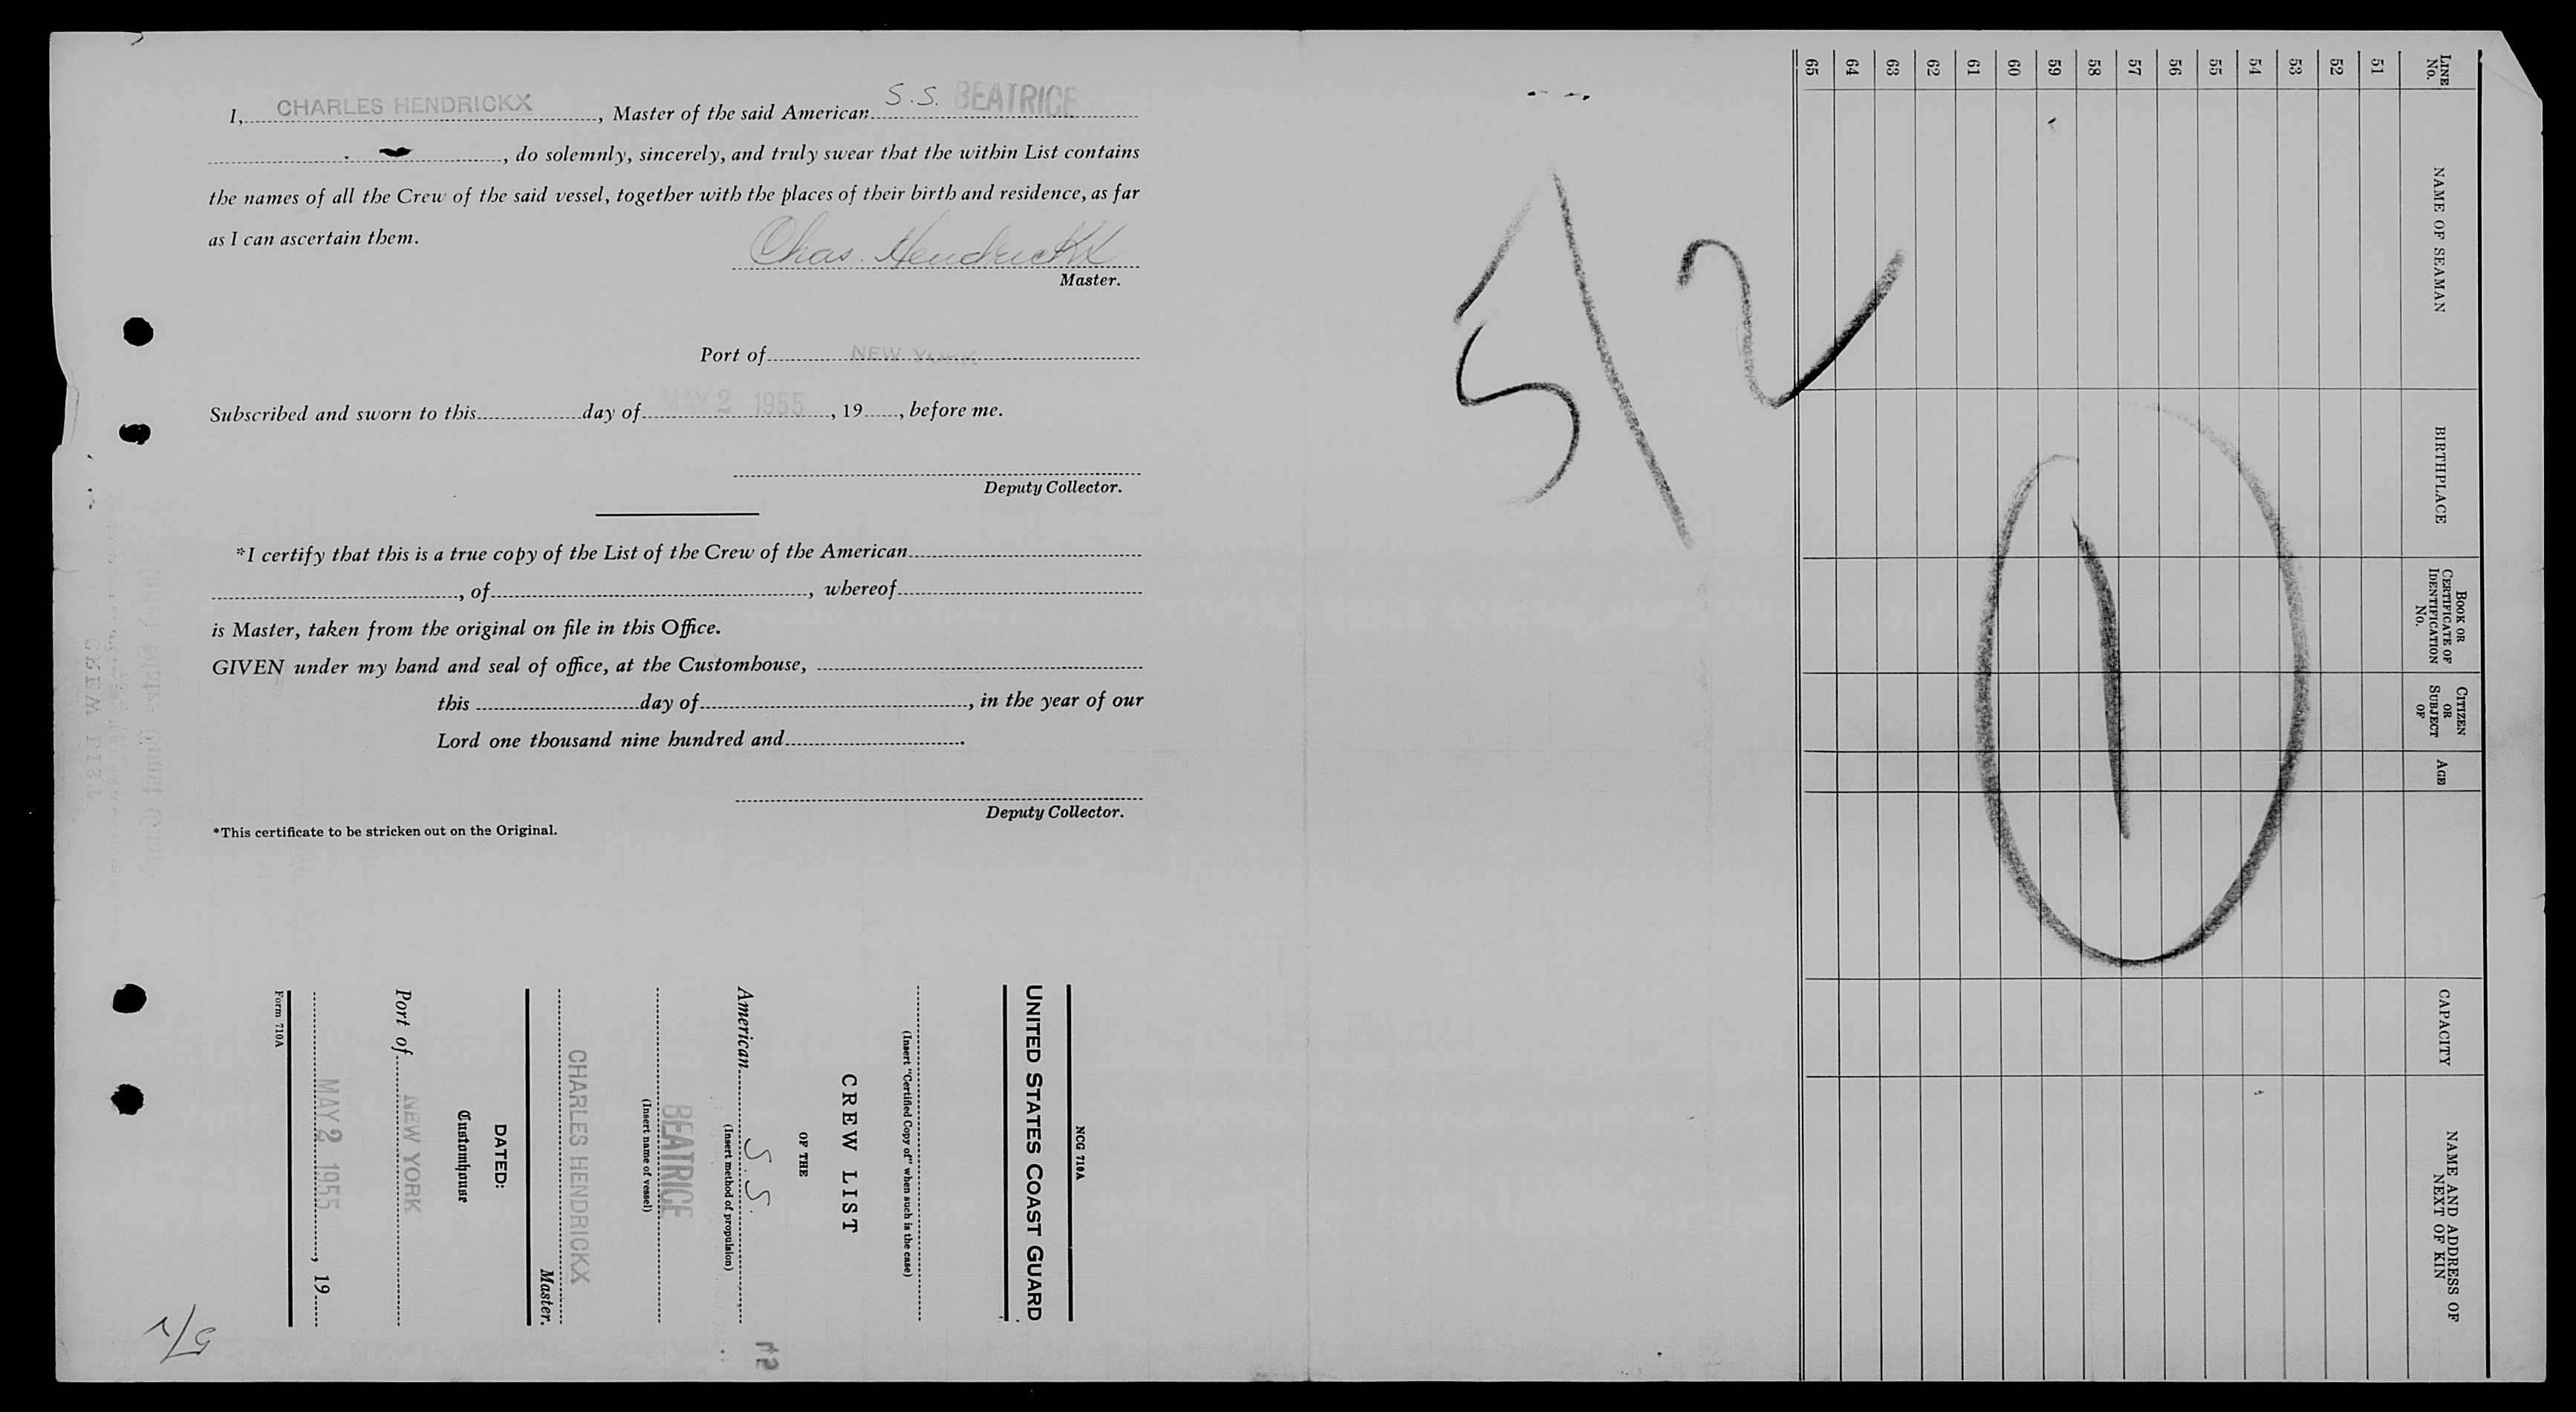 I, CHARLES HENDRICKX, Master of the said American S.S. BEATRICE
, do solemnly, sincerely, and truly swear that the within List contains
the names of all the Crew of the said vessel, together with the places of their birth and residence, as far
as I can ascertain them.
Chas. Hendrickx
Master.
Port of NEW YORK
Subscribed and sworn to this day of MAY 2 1955, 19, before me.
Deputy Collector.
*I certify that this is a true copy of the List of the Crew of the American
, of , whereof
is Master, taken from the original on file in this Office.
GIVEN under my hand and seal of office, at the Customhouse,
this day of , in the year of our
Lord one thousand nine hundred and .
Deputy Collector.
*This certificate to be stricken out on the Original.
NCG 710A
UNITED STATES COAST GUARD
(Insert "Certified Copy of" when such is the case)
CREW LIST
OF THE
American S.S.
(Insert method of propulsion)
BEATRICE
(Insert name of vessel)
CHARLES HENDRICKX
Master.
DATED:
Customhouse
Port of NEW YORK
MAY 2 1955, 19
Form 710A
5/2
5/2
1
LINE No.
NAME OF SEAMAN
BIRTHPLACE
BOOK OR CERTIFICATE OF IDENTIFICATION No.
CITIZEN OR SUBJECT OF
AGE
CAPACITY
NAME AND ADDRESS OF NEXT OF KIN
51
52
53
54
55
56
57
58
59
60
61
62
63
64
65